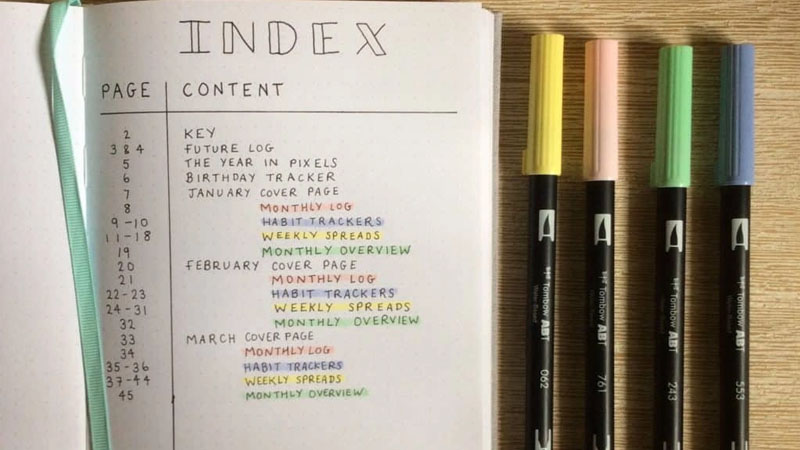 INDEX
PAGE CONTENT
2 KEY
3 & 4 FUTURE LOG
5 THE YEAR IN PIXELS
6 BIRTHDAY TRACKER
7 JANUARY COVER PAGE
8 MONTHLY LOG
9-10 HABIT TRACKERS
11-18 WEEKLY SPREADS
19 MONTHLY OVERVIEW
20 FEBRUARY COVER PAGE
21 MONTHLY LOG
22-23 HABIT TRACKERS
24-31 WEEKLY SPREADS
32 MONTHLY OVERVIEW
33 MARCH COVER PAGE
34 MONTHLY LOG
35-36 HABIT TRACKERS
37-44 WEEKLY SPREADS
45 MONTHLY OVERVIEW
Tombow ABT 062
Tombow ABT 761
Tombow ABT 243
Tombow ABT 553